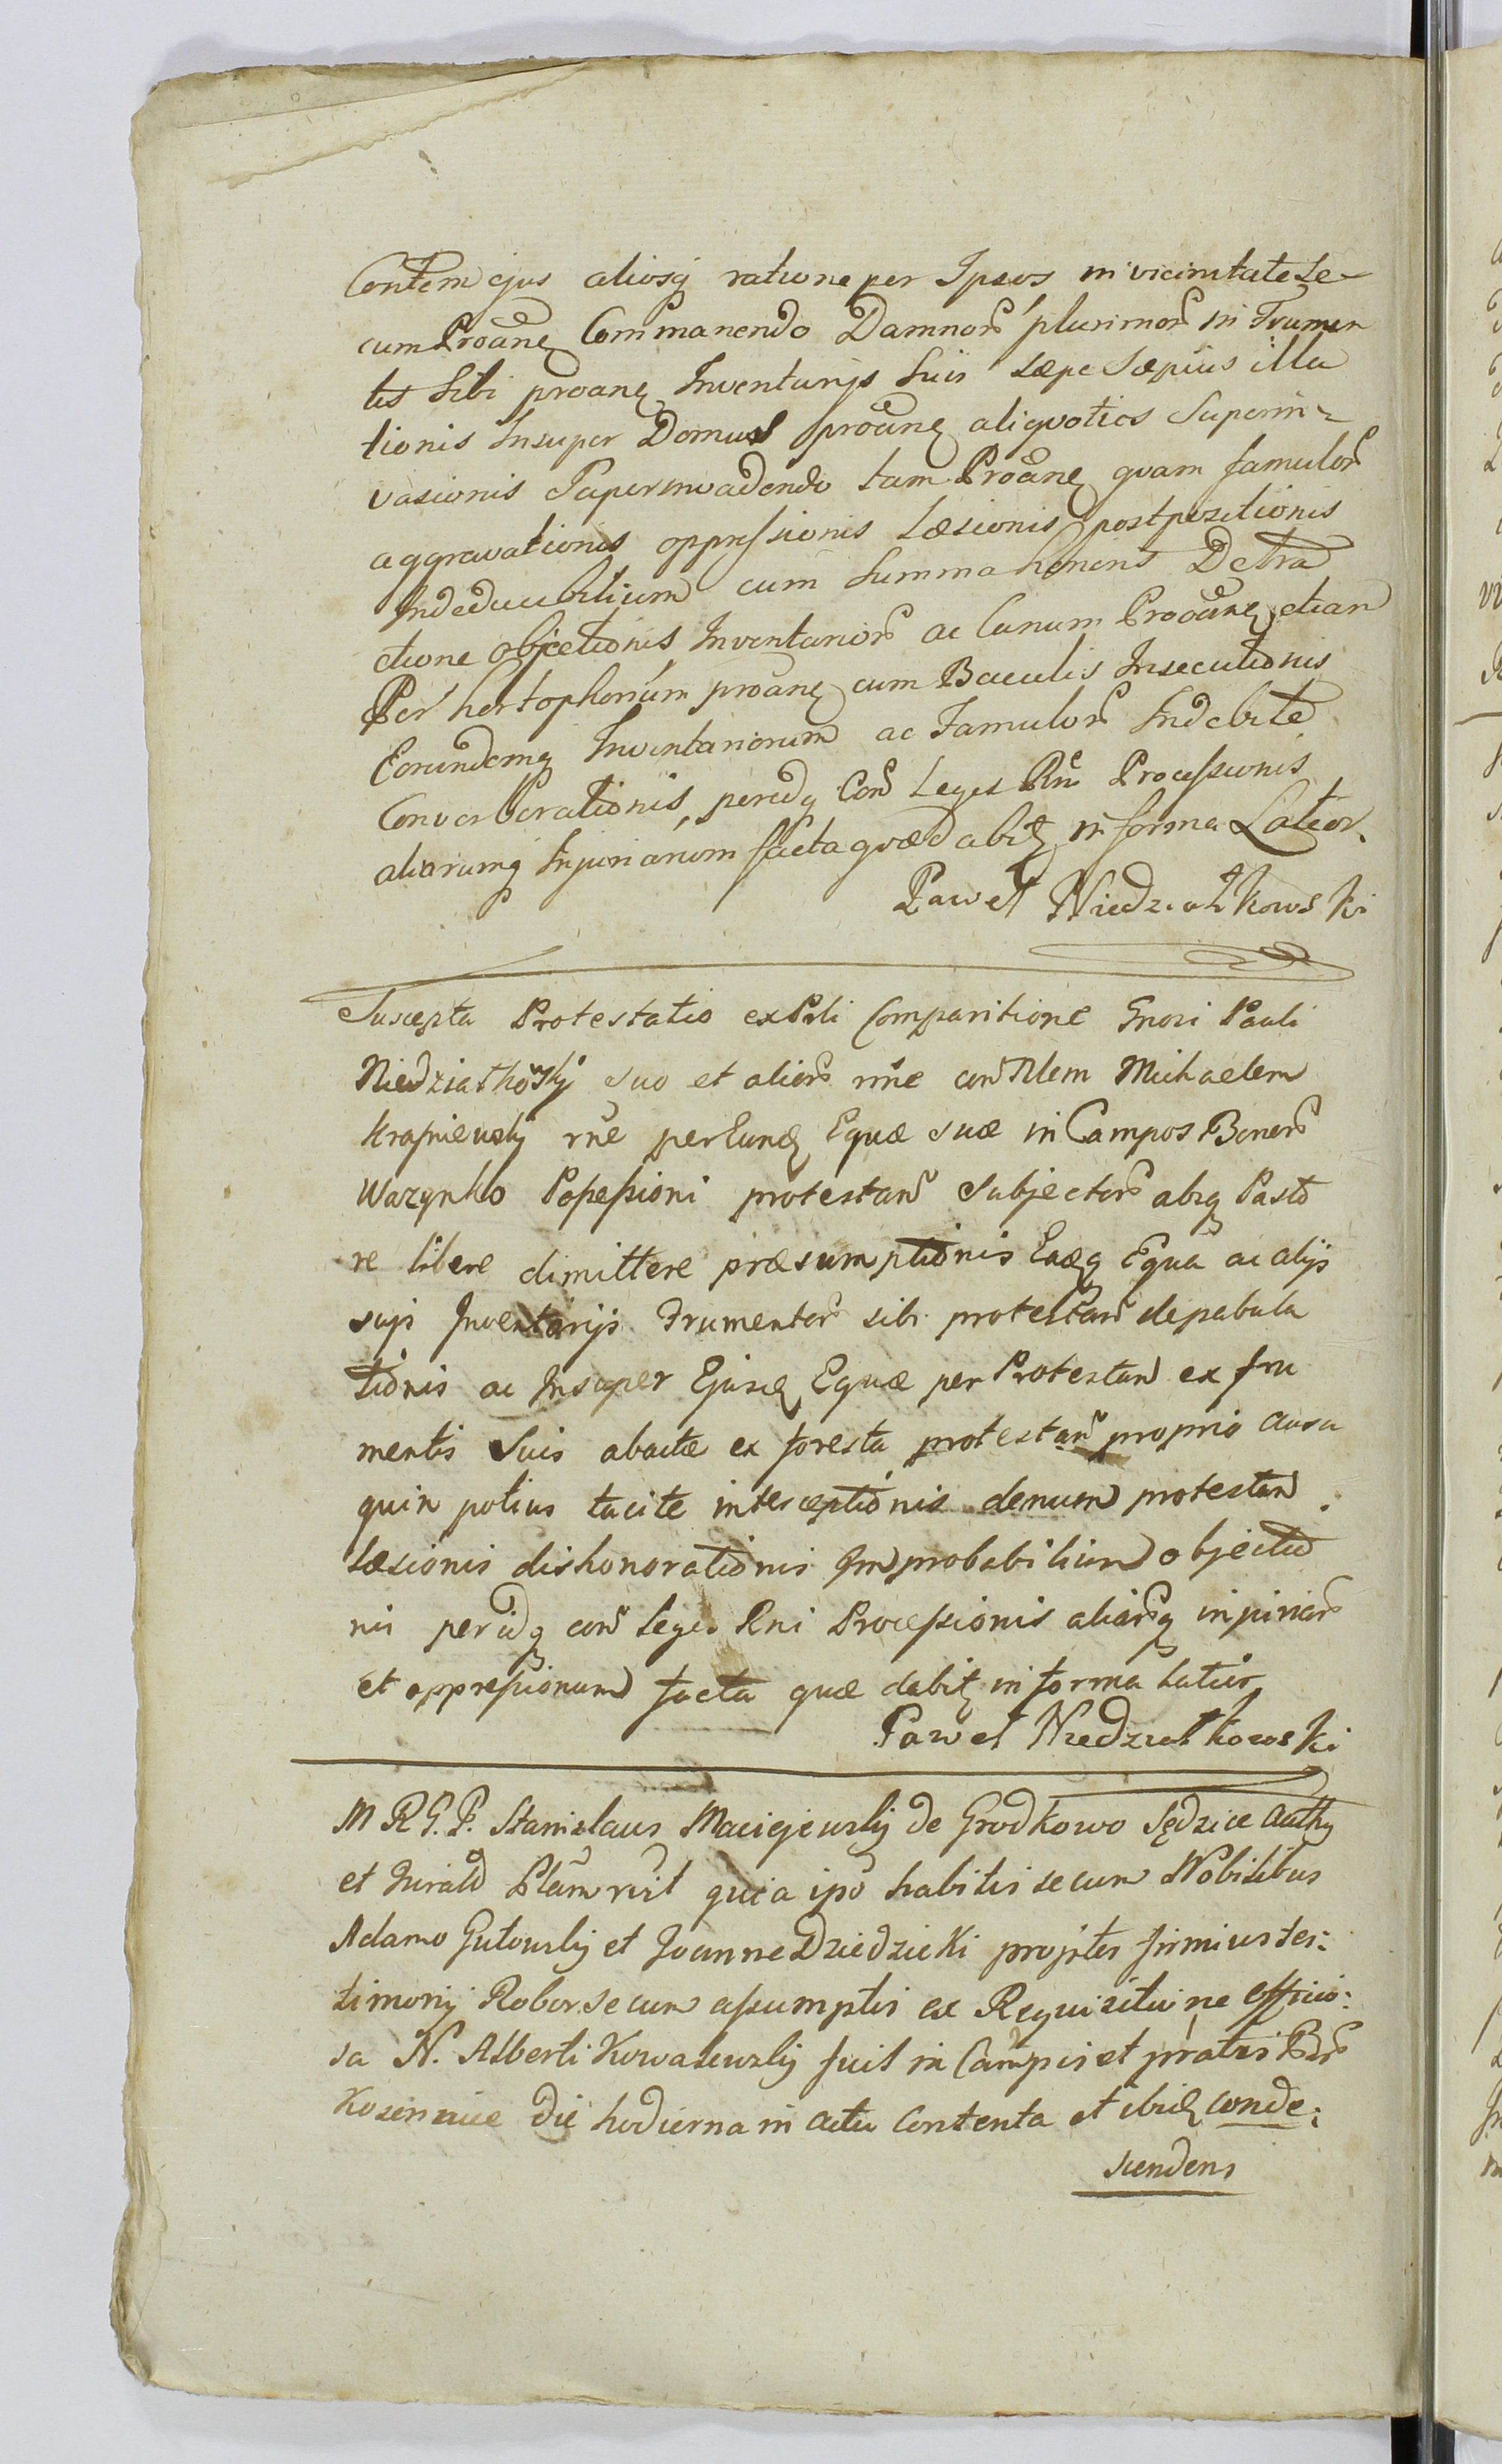 Contem ejus aliosq ratione per Ipsos in vicinitate Se-
cum Proãne Commanendo Damnor plurimor in Frumen
tis Sibi proane Inventarijs Suis saepe Saepius illa
tionis Insuper Domus proãne aliquoties Superin=
vasionis Superinvadendo tam Proãne quam famulor
aggravationis oppressionis Laesionis postpositionis
cum Summa honoris Detra
ctione objectionis Inventarior ac Canum Proãne etiam
Per hortophorium proãne cum Baculis Insecutionis
Eorundemq Inventariorum ac Famulor Indebite
Converberationis peridq Con Leges Rni Processionis
aliarumq Injuriarum facta quae dabit in forma Latior.
Paweł Niedziałkowski
Suscepta Protestatio ex Psli Comparitione Gnosi Pauli
Niedziałkowskij suo et alior nñe con Nlem Michaelem
Krasniewskij rñe per Eund Equae suae in Campos Bonor
Wazynko Possessioni protestan Subjector absq Pasto
re libere dimittere praesumptionis Eaeq Equa ac alijs
suis Inventarijs Frumentor sibi protestan depabula
tionis ac Insuper Ejusd Equae per Protestan ex fru
mentis Suis abactae ex foresta protestan proprio ausu
quin potius tacite interceptionis denum protestan
Laesionis dishonorationis Improbabilium objectio
nis peridq con Leges Rni Processionis aliarq injuriar
et oppressionum facta quae dabit in forma latior
Paweł Niedziałkowski
M R G. P. Stanislaus Maciejewskij de Grodkowo Sędzice Authq
et Jurald Ptam rvit quia ipo habitis secum Nobilibus
Adamo Gutowskij et Joanne Dziedzicki propter firmius tes:
timonij Robor secum assumptis ex Requisitione officio:
sa N. Alberti Kowalewskij fuit in Campis et pratis Bor
die hodierna in actu Contenta et ibid conde:
scendens